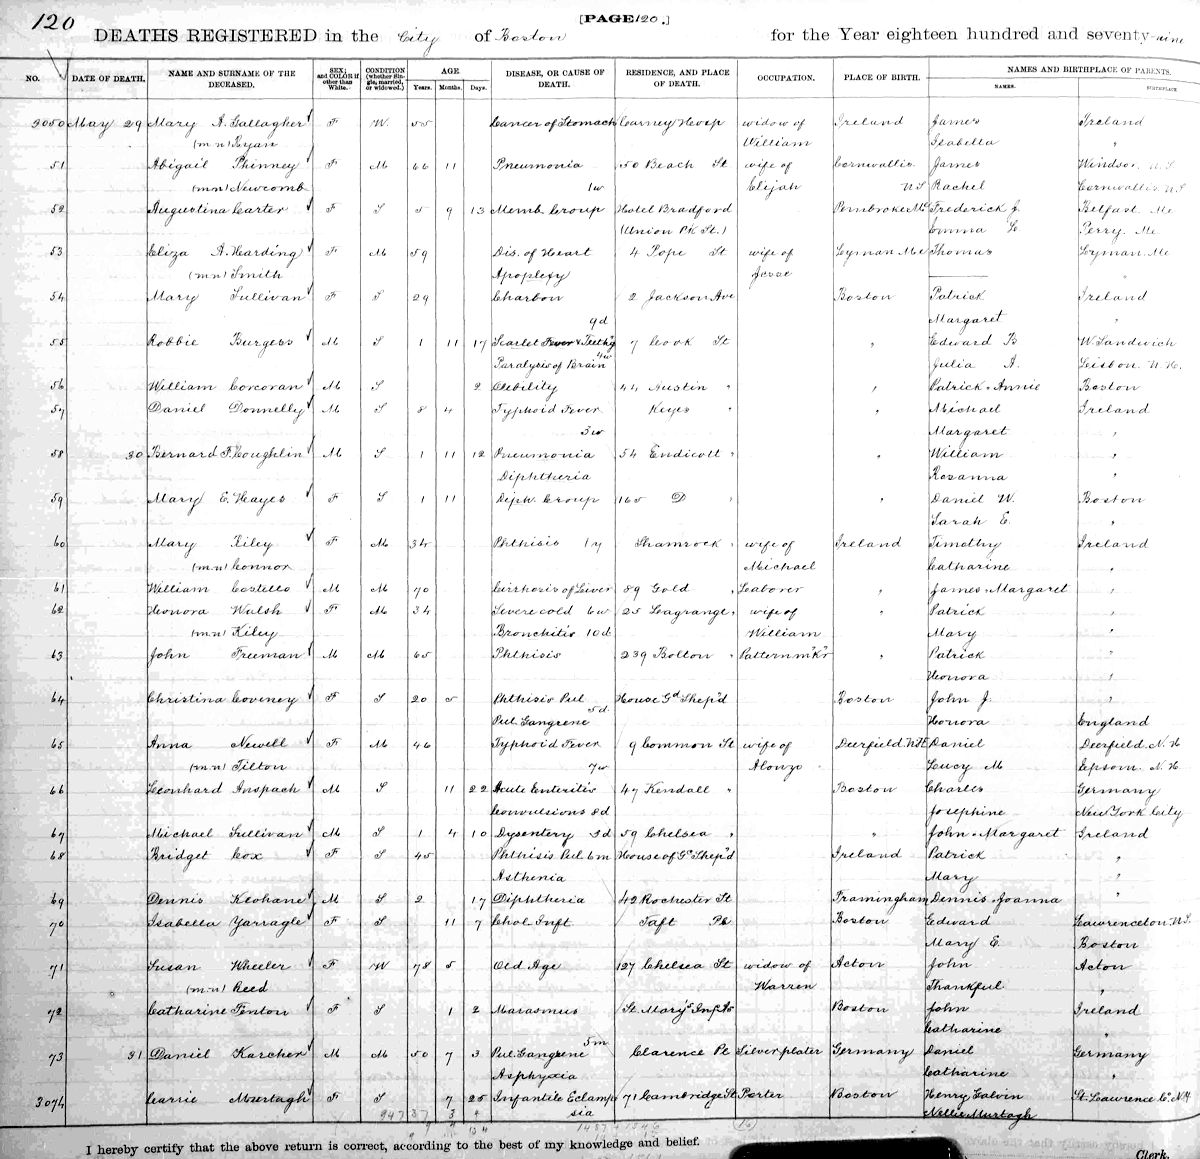 120
[PAGE 120.]
DEATHS REGISTERED in the City of Boston for the Year eighteen hundred and seventy-nine
NO. DATE OF DEATH. NAME AND SURNAME OF THE DECEASED. SEX; and COLOR if other than White. CONDITION (whether Single, married, or widowed.) AGE Years. Months. Days. DISEASE, OR CAUSE OF DEATH. RESIDENCE, AND PLACE OF DEATH. OCCUPATION. PLACE OF BIRTH. NAMES AND BIRTHPLACE OF PARENTS. NAMES. BIRTHPLACE
3050 May 29 Mary A. Gallagher F W 55 Cancer of Stomach Carney Hosp widow of Ireland James Ireland
(m n) Ryan William Isabella "
51 Abigail Phinney F M 66 11 Pneumonia 50 Beach St wife of Cornwallis James Windsor N.S.
(m n) Newcomb 1w Elijah N S Rachel Cornwallis N.S
52 Augustina Carter F S 5 9 13 Memb. Croup Hotel Bradford Pembroke Me Frederick J. Belfast Me
(Union Pk St.) Emma L. Perry. Me
53 Eliza A. Harding F M 59 Dis. of Heart 4 Pope St wife of Lyman Me Thomas Lyman Me
(m n) Smith Apoplexy Jesse "
54 Mary Sullivan F S 29 Charbon 2 Jackson Ave Boston Patrick Ireland
9d Margaret "
55 Robbie Burgess M S 1 11 17 Scarlet Fever & Teeth'g 7 Cook St " Edward B W. Sandwich
4w
Paralysis of Brain Julia A. Lisbon N.H.
56 William Corcoran M S 2 Debility 44 Austin " " Patrick & Annie Boston
57 Daniel Donnelly M S 8 4 Typhoid Fever Keyes " " Michael Ireland
3w Margaret "
58 30 Bernard F. Coughlin M S 1 11 12 Pneumonia 54 Endicott " " William "
Diphtheria Rosanna "
59 Mary E. Hayes F S 1 11 Diph. Croup 165 D " " Daniel W. Boston
Sarah E. "
60 Mary Kiley F M 34 Phthisis 1y Shamrock " wife of Ireland Timothy Ireland
(m n) Connor Michael Catharine "
61 William Costello M M 70 Cirrhosis of Liver 89 Gold " Laborer " James & Margaret "
62 Honora Walsh F M 34 Severe cold 6w 25 Lagrange " wife of " Patrick "
(m n) Kiley Bronchitis 10d William Mary "
63 John Freeman M M 65 Phthisis 239 Bolton " Patternm'k'r " Patrick "
Honora "
64 Christina Coveney F S 20 5 Phthisis Pul House Gd Shep'd Boston John J. "
5d
Pul. Gangrene Honora England
65 Anna Newell F M 46 Typhoid Fever 9 Common St wife of Deerfield N.H. Daniel Deerfield N. H
(m n) Tilton 7w Alonzo Lucy M Epsom N. H
66 Leonhard Anspach M S 11 22 Acute Enteritis 47 Kendall " Boston Charles Germany
Convulsions 8d Josephine New York City
67 Michael Sullivan M S 1 4 10 Dysentery 3d 59 Chelsea " " John & Margaret Ireland
68 Bridget Cox F S 45 Phthisis Pul 6m House of Gd Shep'd Ireland Patrick "
Asthenia Mary "
69 Dennis Keohane M S 2 17 Diphtheria 42 Rochester St Framingham Dennis & Joanna "
70 Isabella Yarragle F S 11 7 Chol. Inft Taft Pl Boston Edward Lawrencetown N.S.
Mary E. Boston
71 Susan Wheeler F W 78 5 Old Age 127 Chelsea St widow of Acton John Acton
(m n) Reed Warren Thankful "
72 Catharine Fenton F S 1 2 Marasmus St. Mary's Inf. As Boston John Ireland
Catharine "
73 31 Daniel Karcher M M 50 7 3 Pul. Gangrene 5m Clarence Pl Silverplater Germany Daniel Germany
Asphyxia Catharine "
3074 Carrie Murtagh F S 7 25 Infantile Eclamp 71 Cambridge St Porter Boston Henry Galvin St. Lawrence Co. N.Y
sia Nellie Murtagh
I hereby certify that the above return is correct, according to the best of my knowledge and belief.
Clerk.